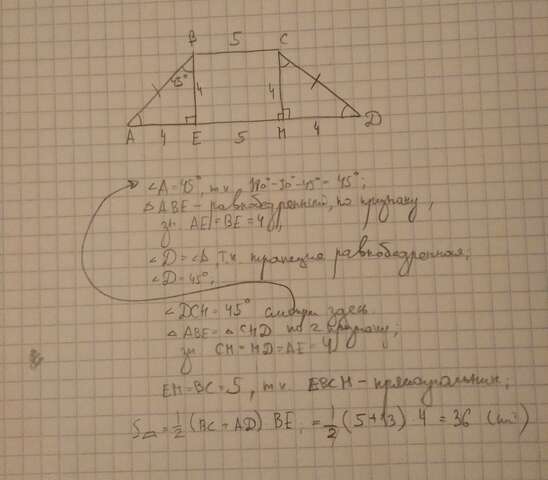 B 5 C
45° 4 4
A 4 E 5 H 4 D
∠A = 45°, т.к. 180° - 90° - 45° = 45°;
△ABE - равнобедренный, по признаку,
зн. AE = BE = 4;
∠D = ∠A т.к. трапеция равнобедренная;
∠D = 45°;
∠DCH = 45° смотри здесь
△ABE = △CHD по 2 признаку;
зн CH = HD = AE = 4
EH = BC = 5, т.к. EBCH - прямоугольник;
S = 1/2 (BC + AD) BE = 1/2 (5 + 13) · 4 = 36